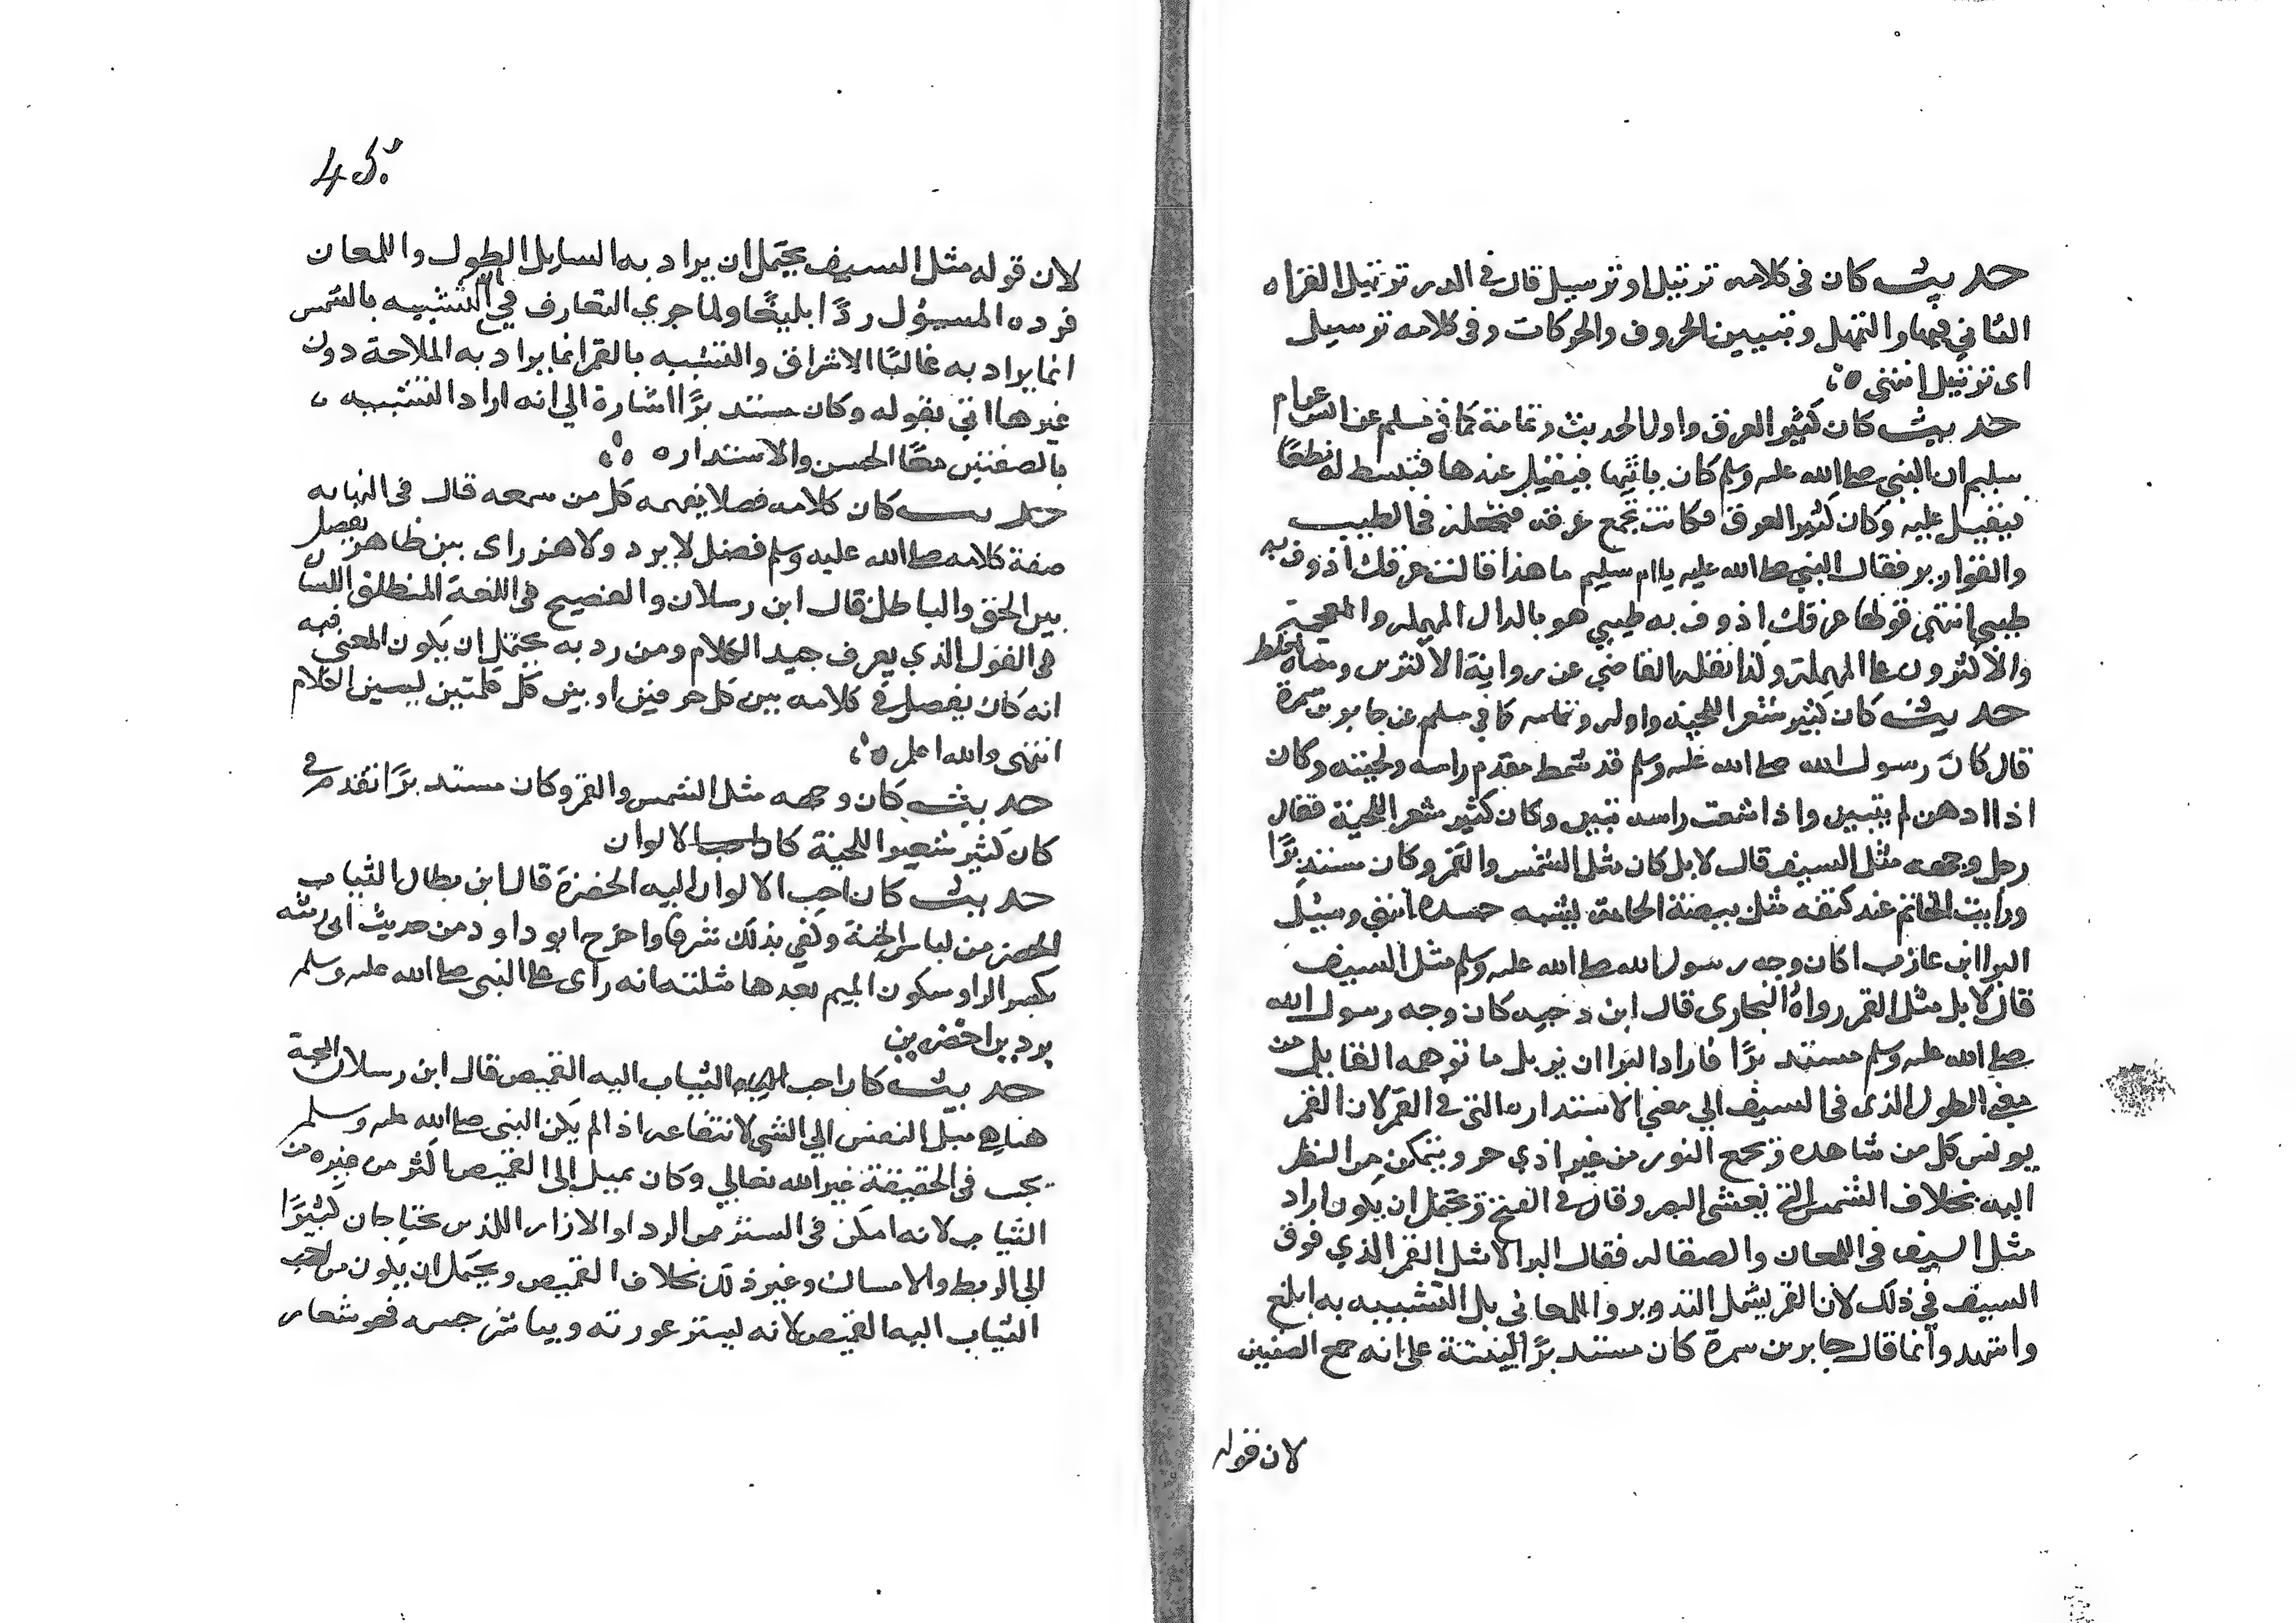 حديث كان في كلامه ترتيل او ترسيل قال في الدر ترتيل القراه
التاني فيها والتمهل وتبيين الحروف والحركات وفي كلامه ترسيل
اى ترتيل انتهى
حديث كان كثير العرق واول الحديث وتمامه كما في مسلم عن ام
سليم ان النبي صلى الله عليه وسلم كان ياتيها فيقيل عندها فتبسط له نطعا
فيقيل عليه وكان كثير العرق فكانت تجمع عرقه فتجعله في الطيب
والقوارير فقال النبي صلى الله عليه يا ام سليم ما هذا قالت عرقك اذوف به
طيبي انتهى قولها عرقك اذوف به طيبي هو بالدال المهمله والمعجمة
والاكثرون على المهملة وكذا نقله القاضي عن رواية الاكثرين ومعناه اخلط
حديث كان كثير شعر اللحية واوله وتمامه كما في مسلم عن جابر بن سمرة
قال كان رسول الله صلى الله عليه وسلم قد شمط مقدم راسه ولحيته وكان
اذا ادهن لم يتبين واذا شعث راسه تبين وكان كثير شعر اللحية فقال
رجل وجهه مثل السيف قال لا بل كان مثل الشمس والقمر وكان مستديرًا
ورايت الخاتم عند كتفه مثل بيضة الحامة يشبه جسده انتهي وسيل
البرا ابن عازب اكان وجه رسول الله صلى الله عليه وسلم مثل السيف
قال لا بل مثل القمر رواه البخارى قال ابن دحيه كان وجه رسول الله
صلى الله عليه وسلم مستديرًا فاراد البرا ان يزيل ما توهمه القايل من
معنى الطول الذى في السيف الى معني الاستداره التي في القمر لان القمر
يونس كل من شاهده ويجمع النور من غير اذي حر ويتمكن من النظر
اليه بخلاف الشمس التي تغشى البصر وقال في الفتح ويحتمل ان يكون اراد
مثل السيف في اللمعان والصقاله فقال البرا لا مثل القمر الذي فوق
السيف في ذلك لان القمر يشمل التدوير واللمعان بل التشبيه به ابلغ
واشهد وانما قال جابر بن سمرة كان مستديرًا لينبه على انه جمع الصفتين
لان قوله
45
لان قوله مثل السيف يحتمل ان يراد به السايل الطول واللمعان
فرده المسؤل ردًا بليغًا ولما جري التعارف في ان التشبيه بالشمس
انما يراد به غالبًا الاشراق والتشبيه بالقمر انما يراد به الملاحة دون
غيرها اتي بقوله وكان مستديرًا اشارة الي انه اراد التشبيه
بالصفتين معًا الحسن والاستداره
حديث كان كلامه فصلا يفهمه كل من سمعه قال في النهايه
صفة كلامه صلى الله عليه وسلم فصل لا برد ولا هذر اى بين ظاهر يفصل
بين الحق والباطل قال ابن رسلان والفصيح في اللغة المنطلق اللسان
في القول الذي يعرف جيد الكلام ومن رد به يحتمل ان يكون المعنى فيه
انه كان يفصل في كلامه بين كل حرفين او بين كل كلمتين ليسين الكلام
انتهى والله اعلم
حديث كان وجهه مثل الشمس والقمر وكان مستديرًا تقدم في
كان كثير شعير اللحية كان احب الالوان
حديث كان احب الالوان اليه الخضرة قال ابن بطال الثياب
الخضر من لباس الجنة وكفى بذلك شرفا واخرج ابو داود من حديث ابى رمثه
بكسر الرا وسكون الميم بعدها مثلثه انه راى على النبى صلى الله عليه وسلم
بردين اخضرين
حديث كان احب الثياب اليه القميص قال ابن رسلان المحبة
هنا هي ميل النفس الي الشي لانتفاعه اذ لم يكن النبى صلى الله عليه وسلم
يحب في الحقيقة غير الله تعالي وكان يميل إلى القميص اكثر من غيره من
الثياب لانه امكن في الستر من الردا والازار اللذين يحتاجان كثيرًا
الى الربط والامساك وغير ذلك بخلاف القميص ويحتمل ان يكون من احب
الثياب اليه القميص لانه يستر عورته ويباشر جسمه فهو شعار